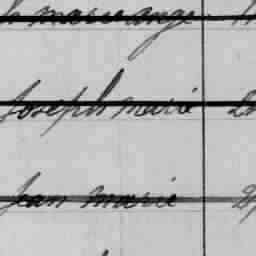 marie ange
Joseph marie
Jean marie